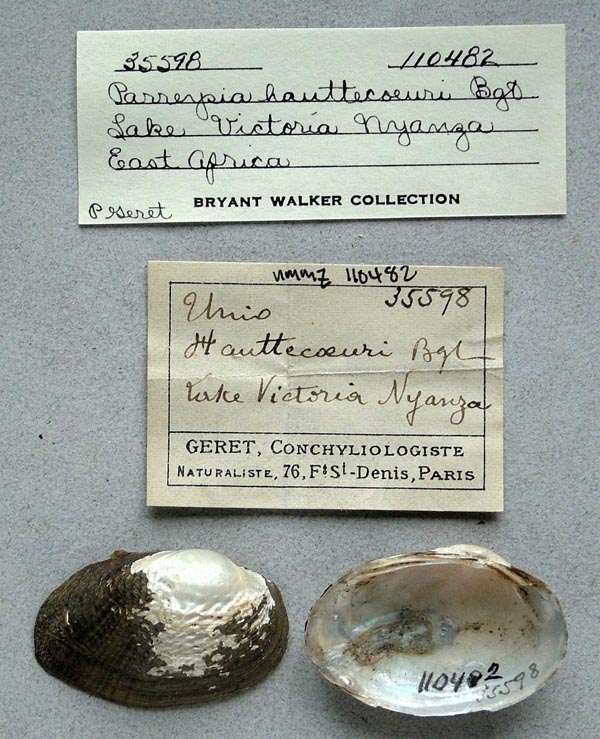 35598 110482
Parreysia hauttecoeuri Bgt
Lake Victoria Nyanza
East Africa
P Geret BRYANT WALKER COLLECTION
ummz 110482
35598
Unio
Hauttecœuri Bgt
Lake Victoria Nyanza
GERET, CONCHYLIOLOGISTE
NATURALISTE, 76, Fg St-DENIS, PARIS
110482
35598